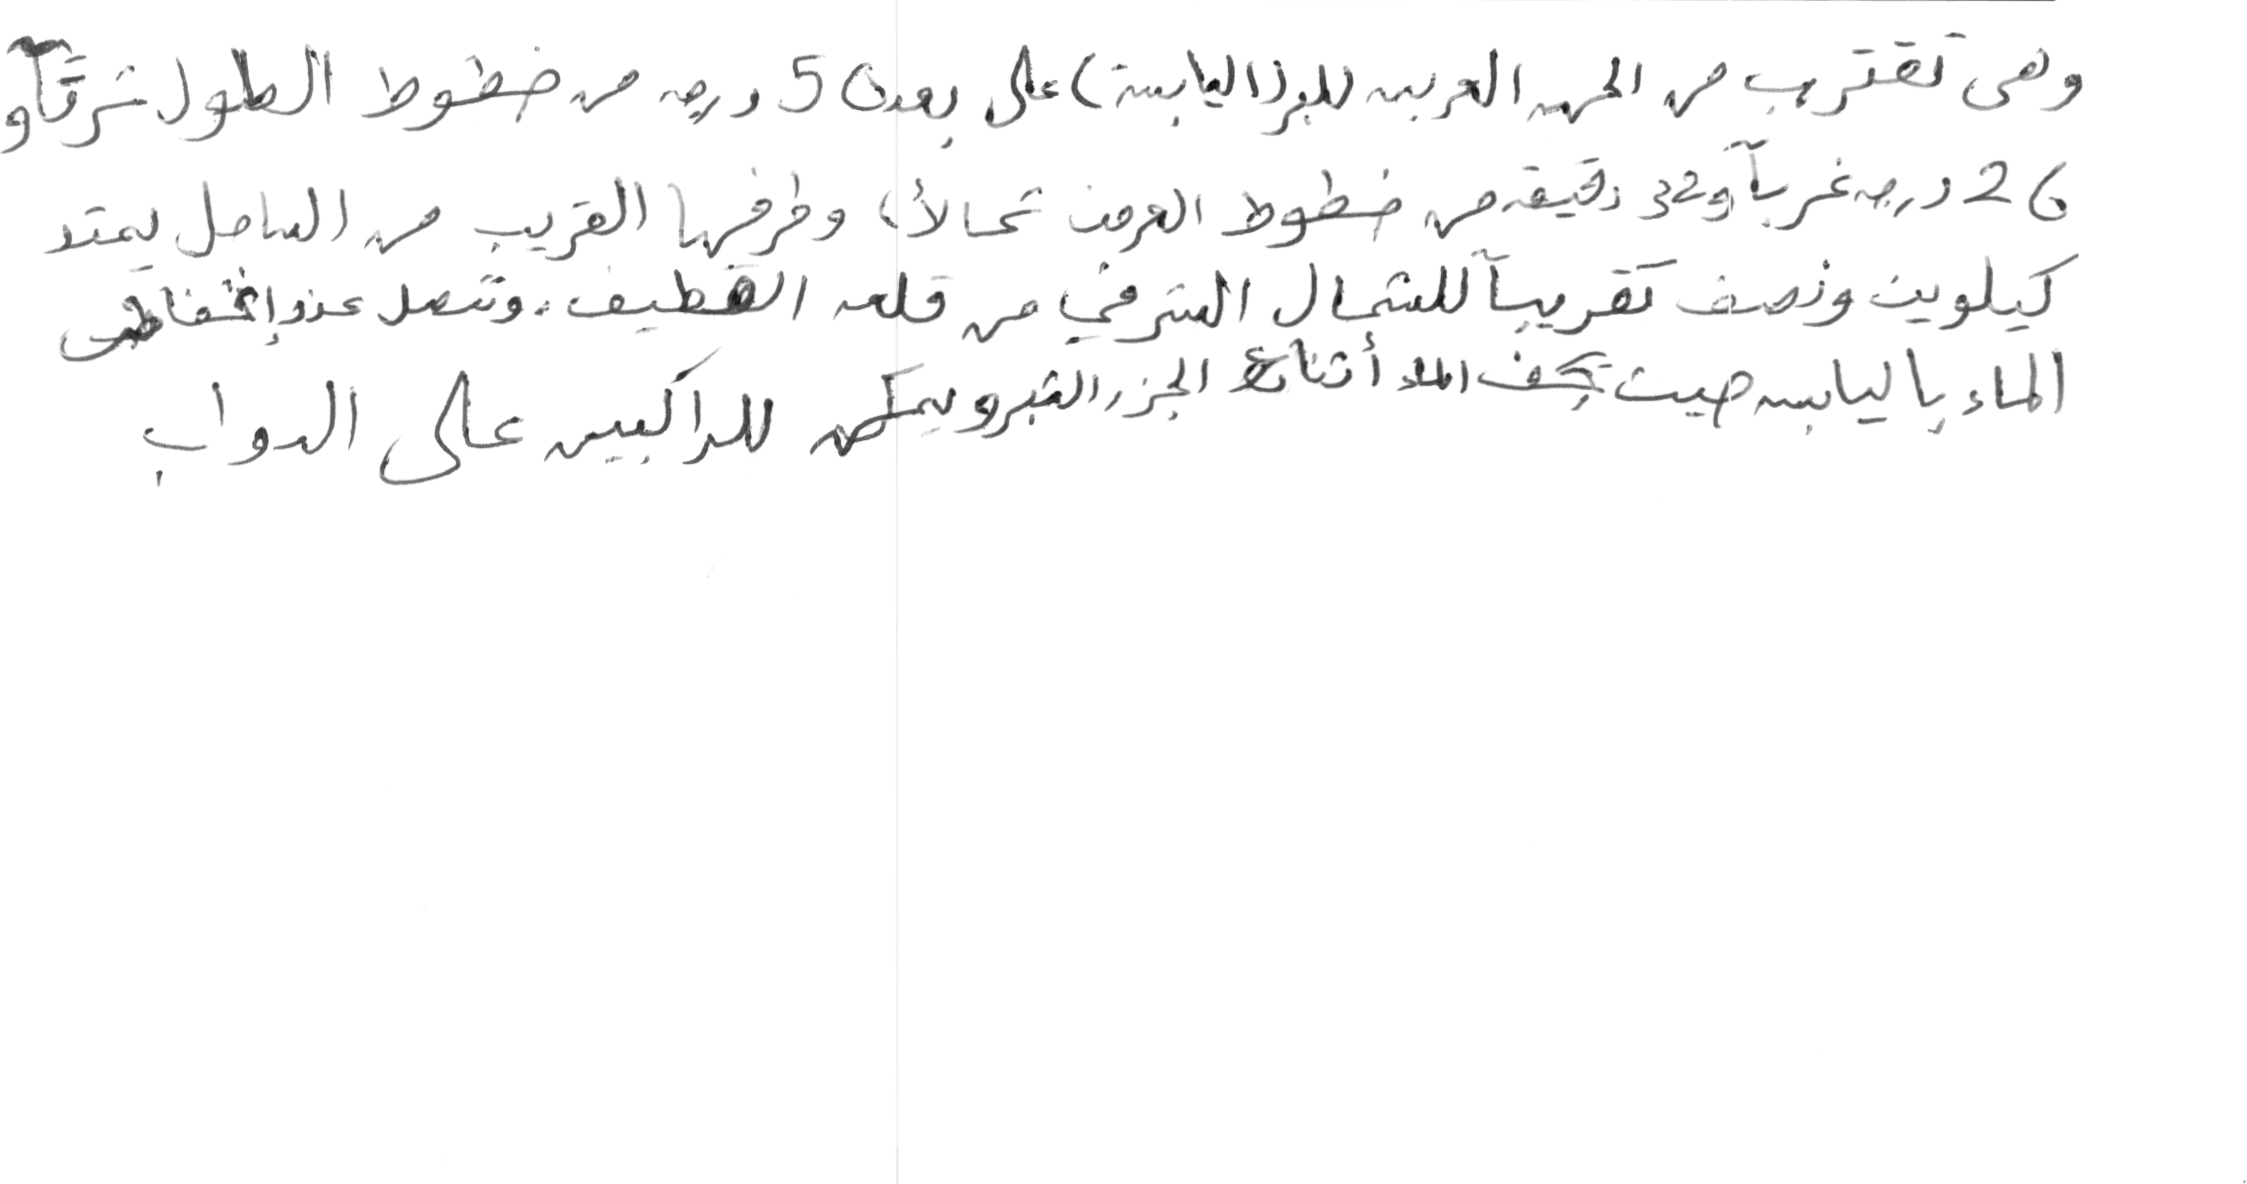 وهى تقترب من الجهه العربيه للبر (اليابسة) على بعد 50 درجه من خطوط الطول شرقاً و
26 درجه غرباً و32 دقيقه من خطوط العرض شمالاً، وطرفها القريب من الساحل يمتد
كيلوين ونصف تقريباً للشمال الشرقي من قلعه القطيف. وتتصل عند إنخفاض
الماء باليابسه حيث يجف الماء أثناء الجزر الكبير ويمكن للراكبين على الدواب